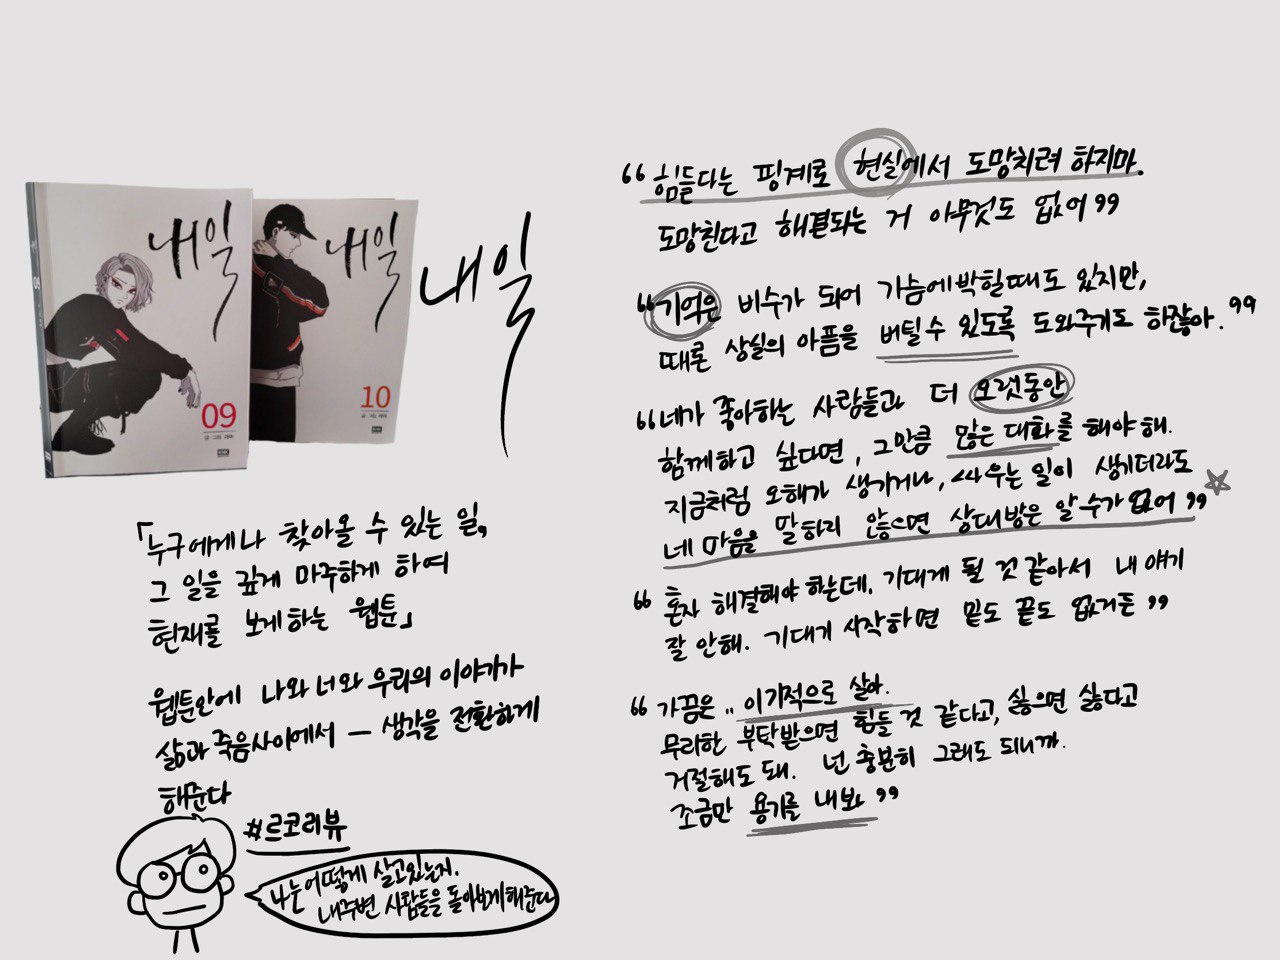 내일
09
글·그림 라마
내일
10
글·그림 라마
내일
「누구에게나 찾아올 수 있는 일,
그 일을 깊게 마주하게 하여
현재를 보게하는 웹툰」
웹툰안에 나와 너와 우리의 이야기가
삶과 죽음사이에서 — 생각을 전환하게
해준다
#르코리뷰
나는 어떻게 살고있는지.
내주변 사람들을 돌아보게해준다
“힘들다는 핑계로 현실에서 도망치려 하지마.
도망친다고 해결되는 거 아무것도 없어”
“기억은 비수가 되어 가슴에 박힐때도 있지만,
때론 상실의 아픔을 버틸 수 있도록 도와주기도 하잖아.”
“네가 좋아하는 사람들과 더 오랫동안
함께하고 싶다면, 그만큼 많은 대화를 해야해.
지금처럼 오해가 생기거나, 싸우는 일이 생기더라도
네 마음을 말하지 않으면 상대방은 알 수가 없어”
“혼자 해결해야 하는데, 기대게 될 것 같아서 내 얘기
잘 안해. 기대기 시작하면 밑도 끝도 없거든”
“가끔은.. 이기적으로 살아.
무리한 부탁받으면 힘들 것 같다고, 싫으면 싫다고
거절해도 돼. 넌 충분히 그래도 되니까.
조금만 용기를 내봐”